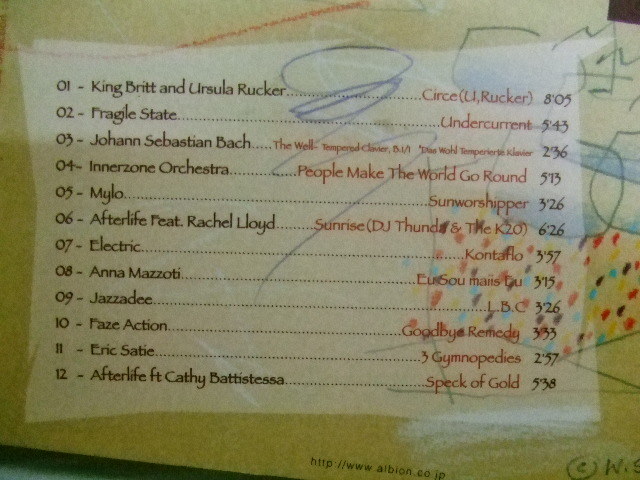 01 - King Britt and Ursula Rucker..............................Circe(U,Rucker) 8'05
02 - Fragile State..................................................................Undercurrent 5'43
03 - Johann Sebastian Bach.....The Well- Tempered Clavier, B.1/1 "Das Wohl Temperierte Klavier 2'36
04- Innerzone Orchestra.................People Make The World Go Round 5'13
05 - Mylo............................................................................Sunworshipper 3'26
06 - Afterlife Feat. Rachel Lloyd..........Sunrise(DJ Thunda & The K20) 6'26
07 - Electric................................................................................Kontaflo 3'57
08 - Anna Mazzoti...........................................................Eu Sou maiis Eu 3'15
09 - Jazzadee..................................................................................L.B.C 3'26
10 - Faze Action...........................................................Goodbye Remedy 3'33
11 - Eric Satie..................................................................3 Gymnopedies 2'57
12 - Afterlife ft Cathy Battistessa...................................Speck of Gold 5'38
http://www.albion.co.jp